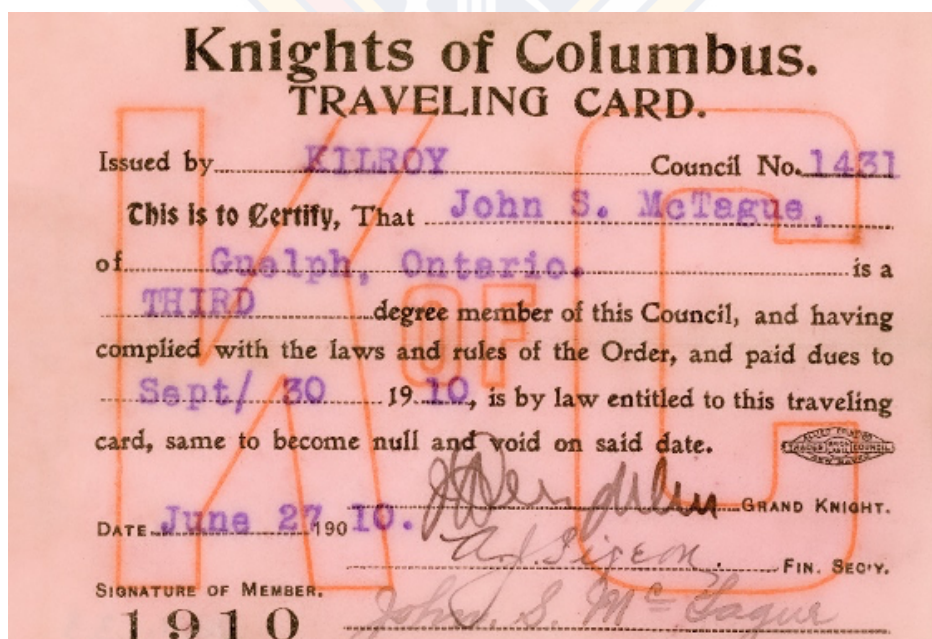 Knights of Columbus.
TRAVELING CARD.
Issued by KILROY Council No. 1431
This is to Certify, That John S. McTague,
of Guelph, Ontario. is a
THIRD degree member of this Council, and having
complied with the laws and rules of the Order, and paid dues to
Sept/ 30 19 10, is by law entitled to this traveling
card, same to become null and void on said date.
ALLIED PRINTING
TRADES UNION LABEL COUNCIL
NEW HAVEN
GRAND KNIGHT.
DATE June 27 190 10.
FIN. SEC'Y.
SIGNATURE OF MEMBER.
John. S. McTague
1910
K OF C